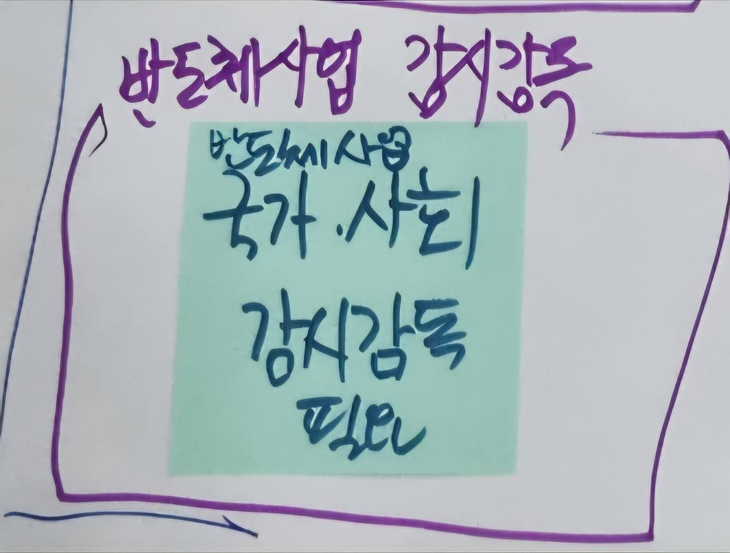 반도체사업 감시감독
반도체 사업
국가·사회
감시감독
필요